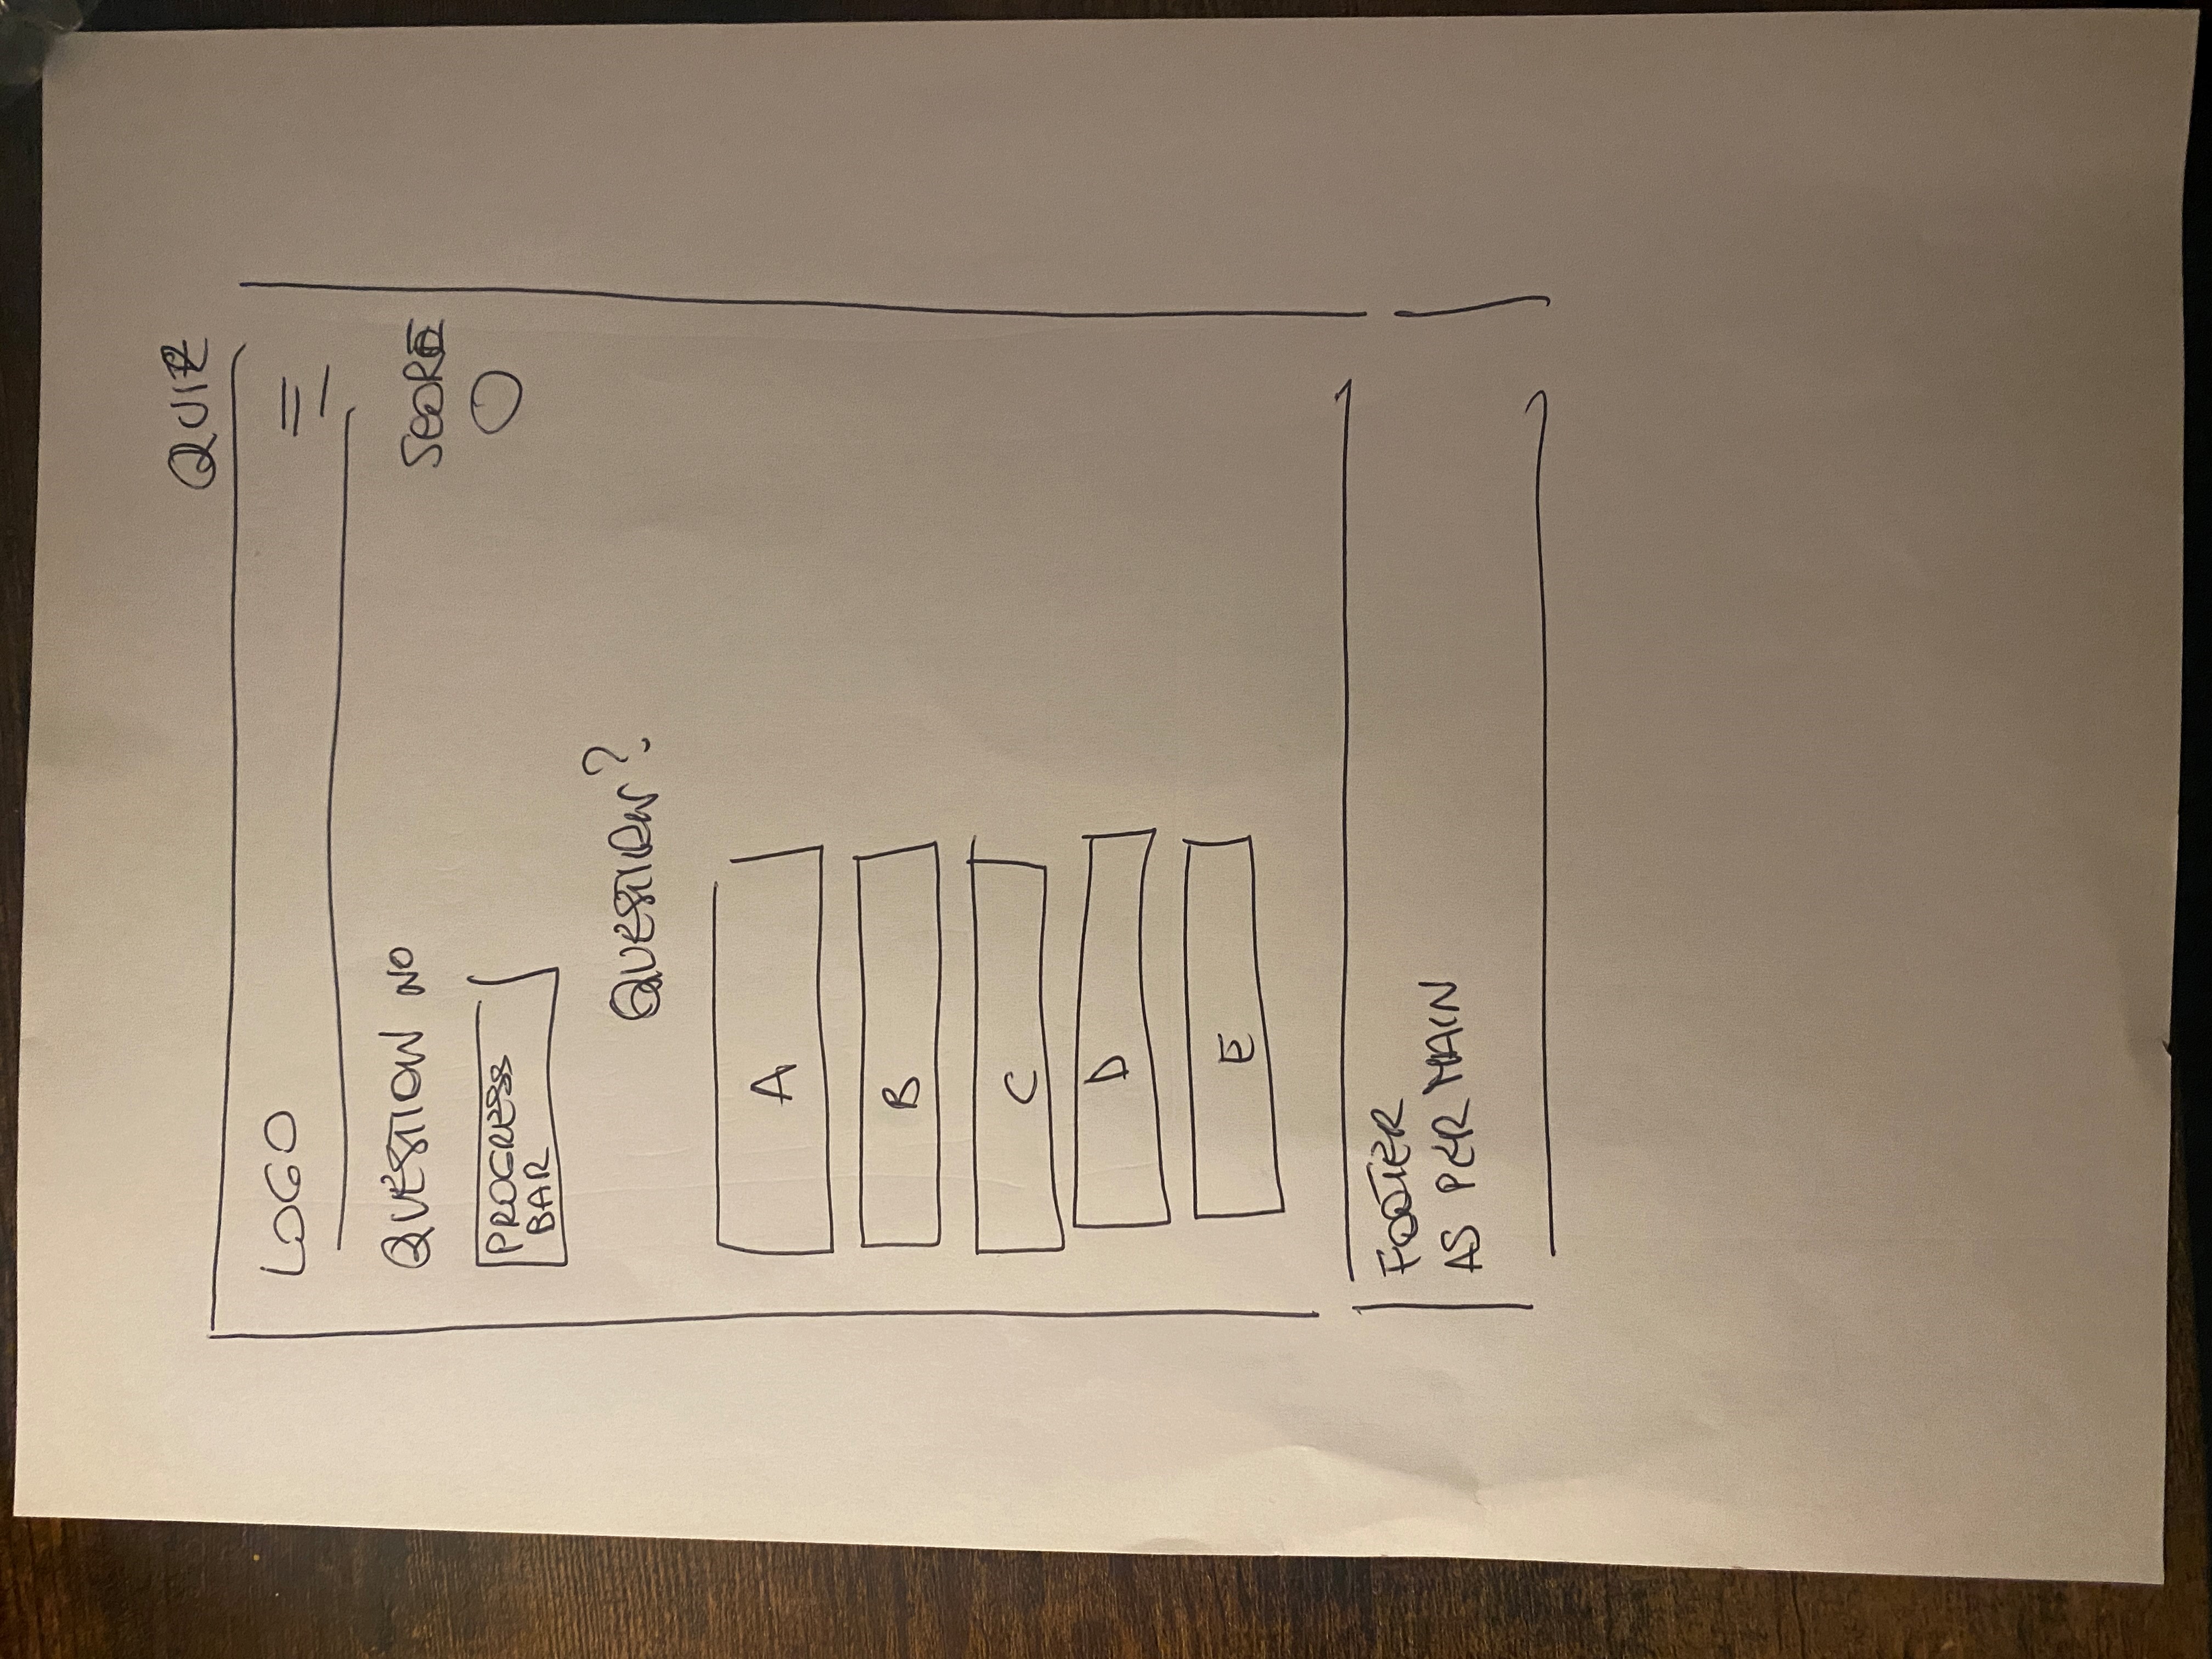 QUIZ
LOGO
QUESTION NO
SCORE
PROGRESS
BAR
QUESTION?
A
B
C
D
E
FOOTER
AS PER MAIN